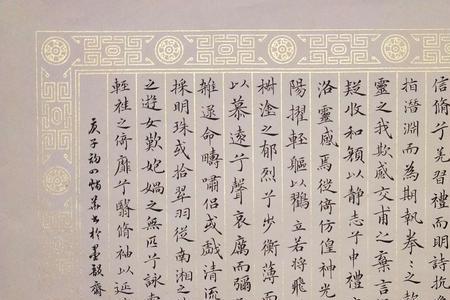 信脩兮羌習禮而明詩抗
指潛淵而為期執拳之款
靈之我欺感交甫之棄言
疑收和顏以靜志兮申禮
洛靈感焉徙倚仿偟神光
陽擢輕軀以鶴立若將飛
椒塗之郁烈兮步衡薄而
以慕遠兮聲哀厲而彌
雜遝命疇嘯侶或戲清流
採明珠或拾翠羽從南湘之
之遊女歎匏媧之無匹兮詠
輕袿之倚靡兮翳脩袖以延
庚子初書於墨韻齋